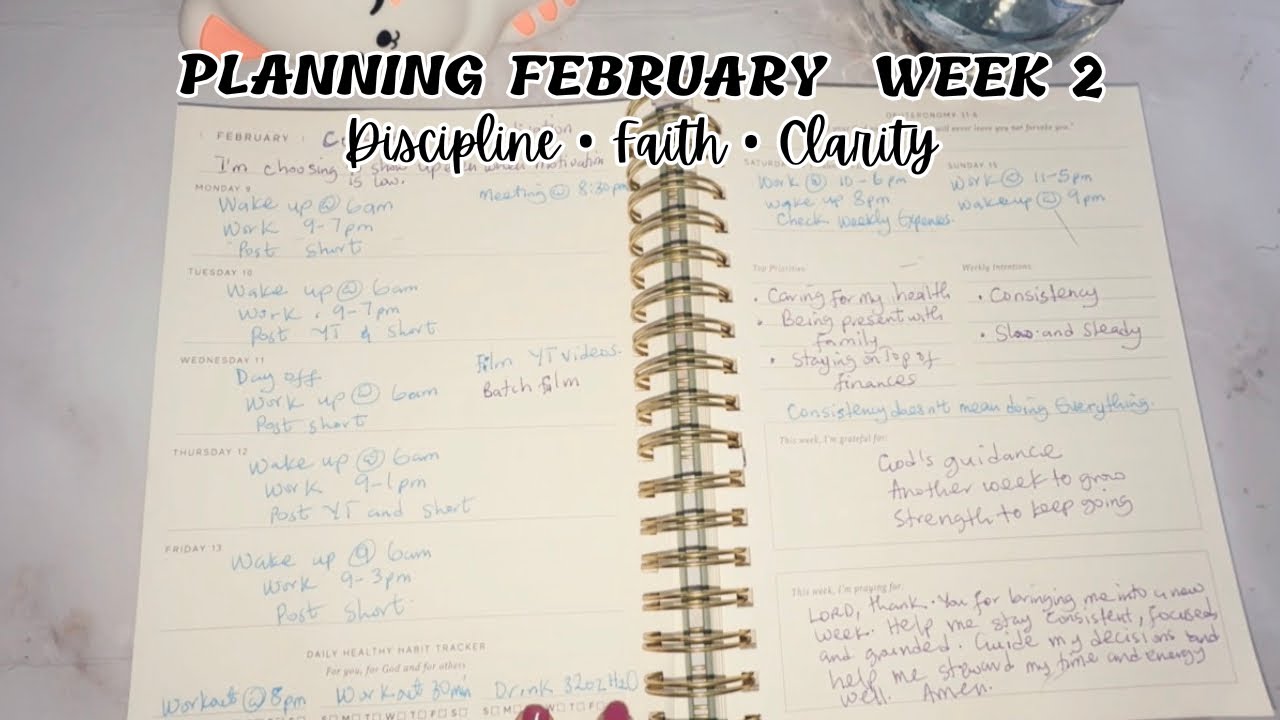 PLANNING FEBRUARY WEEK 2
Discipline • Faith • Clarity
FEBRUARY
I'm choosing show up when motivation
is low.
MONDAY 9
Meeting @ 8:30pm
Wake up @ 6am
Work 9-7pm
Post short
TUESDAY 10
Wake up @ 6am
Work . 9-7pm
Post YT & short
WEDNESDAY 11
Film YT videos.
Day off
Batch film
Work up @ 6am
Post short
THURSDAY 12
Wake up @ 6am
Work 9-1pm
Post YT and short
FRIDAY 13
Wake up @ 6am
Work 9-3pm
Post short
DAILY HEALTHY HABIT TRACKER
For you, for God and for others
Workout @ 8pm Workout 30min Drink 32oz H2O
S M T W T F S S M T W T F S S M
DEUTERONOMY 31:6
will never leave you not forsake you."
SATURDAY
SUNDAY 15
Work @ 10-6pm
Work @ 11-5pm
Wake up 8pm
Wakeup @ 9pm
Check Weekly Expenses.
Top Priorities
• Caring for my health
• Being present with
family
• Staying on Top of
finances
Weekly Intentions
• Consistency
• Slow and steady
Consistency doesn't mean doing Everything.
This week, I'm grateful for:
God's guidance
Another week to grow
Strength to keep going
This week, I'm praying for:
LORD, thank You for bringing me into a new
week. Help me stay consistent, focused
and grounded. Guide my decisions and
help me steward my time and energy
well. Amen.